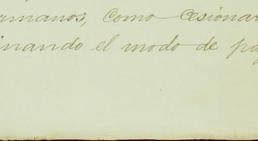 rmanos, como cesionar
inando el modo de pa